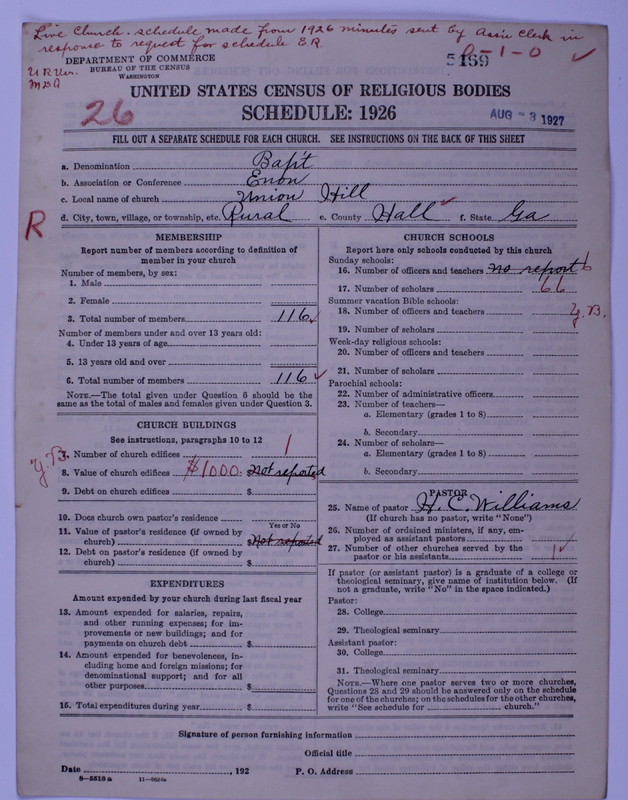 Live Church. schedule made from 1926 minutes sent by Assn Clerk in
response to request for schedule E.R.
DEPARTMENT OF COMMERCE
BUREAU OF THE CENSUS
WASHINGTON
5169
0-1-0
26
UNITED STATES CENSUS OF RELIGIOUS BODIES
SCHEDULE: 1926
AUG -3 1927
FILL OUT A SEPARATE SCHEDULE FOR EACH CHURCH. SEE INSTRUCTIONS ON THE BACK OF THIS SHEET
a. Denomination Bap't
b. Association or Conference Enon
c. Local name of church Union Hill
d. City, town, village, or township, etc. Rural e. County Hall f. State Ga
R
MEMBERSHIP
Report number of members according to definition of
member in your church
Number of members, by sex:
1. Male
2. Female
3. Total number of members 116
Number of members under and over 13 years old:
4. Under 13 years of age
5. 13 years old and over
6. Total number of members 116
NOTE.—The total given under Question 6 should be the
same as the total of males and females given under Question 3.
CHURCH BUILDINGS
See instructions, paragraphs 10 to 12
7. Number of church edifices 1
8. Value of church edifices $1000. $ Not reported
9. Debt on church edifices $
10. Does church own pastor's residence
Yes or No
11. Value of pastor's residence (if owned by
church) $ Not reported
12. Debt on pastor's residence (if owned by
church) $
EXPENDITURES
Amount expended by your church during last fiscal year
13. Amount expended for salaries, repairs,
and other running expenses; for im-
provements or new buildings; and for
payments on church debt $
14. Amount expended for benevolences, in-
cluding home and foreign missions; for
denominational support; and for all
other purposes $
15. Total expenditures during year $
CHURCH SCHOOLS
Report here only schools conducted by this church
Sunday schools:
16. Number of officers and teachers no report 6
17. Number of scholars 66
Summer vacation Bible schools:
18. Number of officers and teachers
19. Number of scholars
Week-day religious schools:
20. Number of officers and teachers
21. Number of scholars
Parochial schools:
22. Number of administrative officers
23. Number of teachers—
a. Elementary (grades 1 to 8)
b. Secondary
24. Number of scholars—
a. Elementary (grades 1 to 8)
b. Secondary
PASTOR
25. Name of pastor H. C. Williams
(If church has no pastor, write "None")
26. Number of ordained ministers, if any, em-
ployed as assistant pastors
27. Number of other churches served by the
pastor or his assistants 1
If pastor (or assistant pastor) is a graduate of a college or
theological seminary, give name of institution below. (If
not a graduate, write "No" in the space indicated.)
Pastor:
28. College
29. Theological seminary
Assistant pastor:
30. College
31. Theological seminary
NOTE.—Where one pastor serves two or more churches,
Questions 28 and 29 should be answered only on the schedule
for one of the churches; on the schedules for the other churches,
write "See schedule for church."
Signature of person furnishing information
Official title
Date , 192 P. O. Address
8-5518a